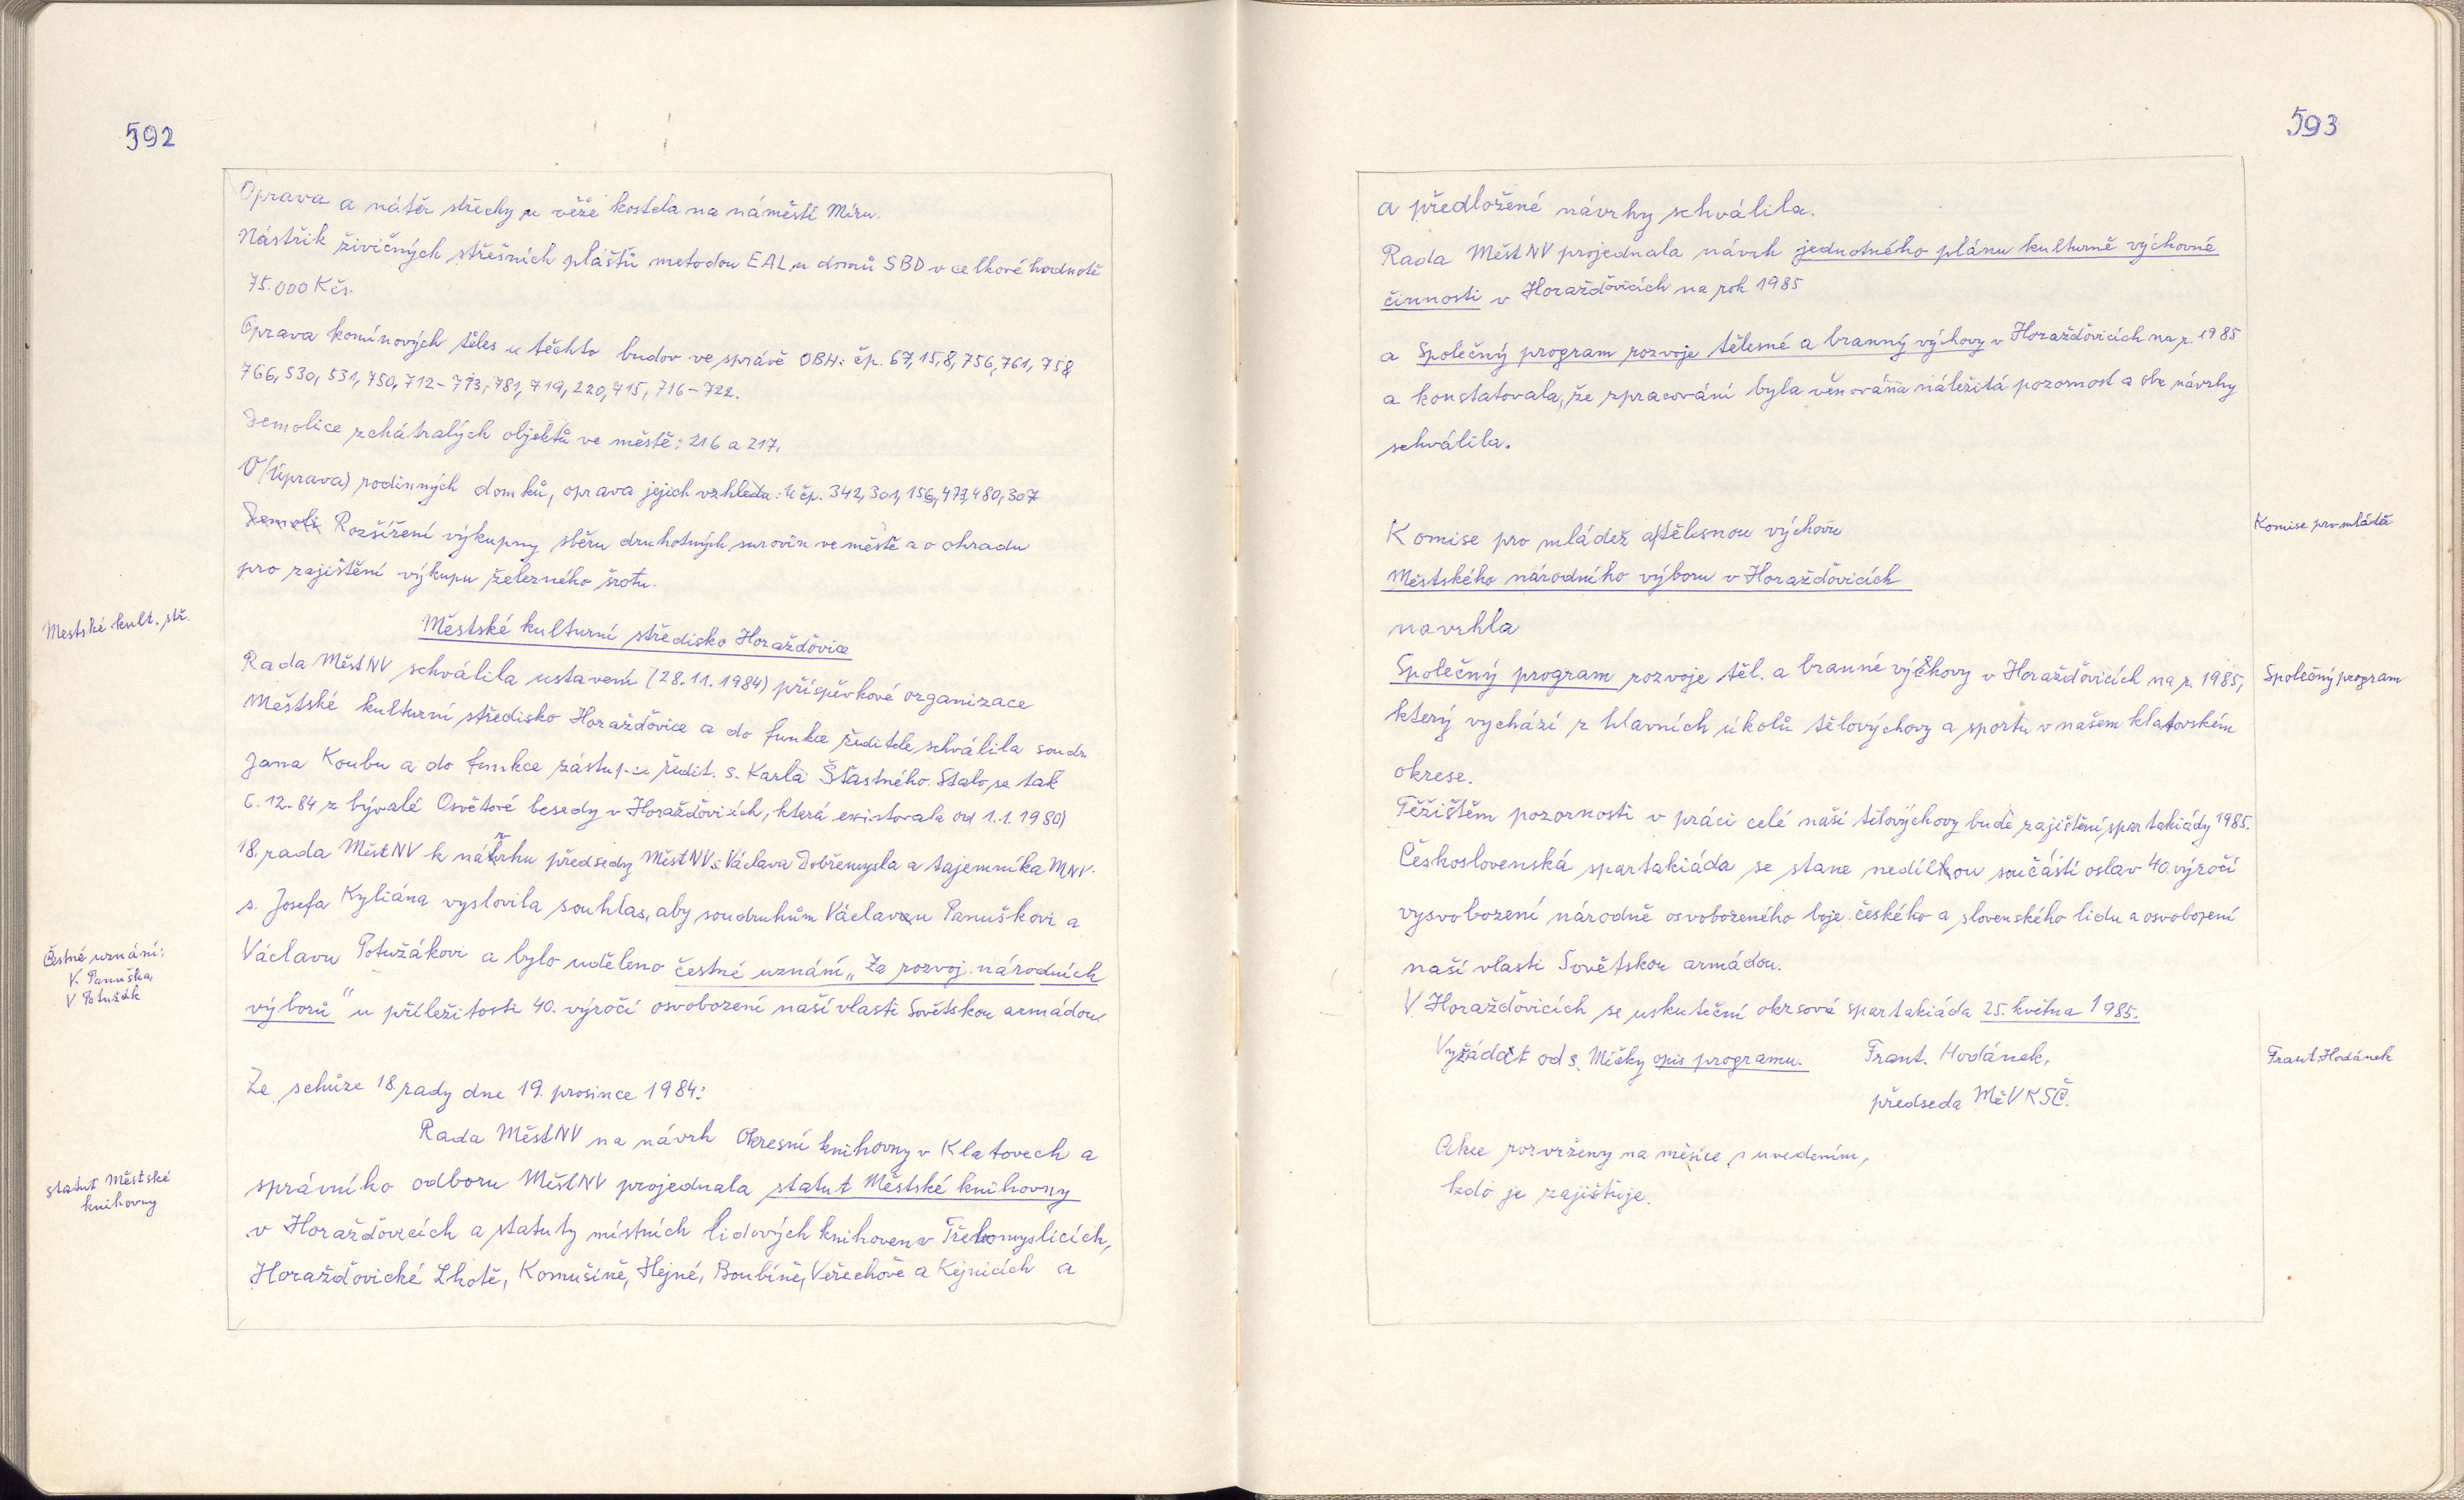 592
Oprava a nátěr střechy u věže kostela na náměstí Míru.
Nástřik živičných střešních plášťů metodou EAL u domů SBD v celkové hodnotě
75.000 Kčs.
Oprava komínových těles u těchto budov ve správě OBH: čp. 67, 15, 8, 756, 761, 758
766, 530, 531, 750, 712-713, 781, 719, 220, 715, 716-722.
Demolice zchátralých objektů ve městě: 216 a 217.
O/(Úprava) rodinných domků, oprava jejich vzhledu: U čp. 342, 301, 156, 477, 480, 307
Demoli Rozšíření výkupny sběru druhotných surovin ve městě a o ohradu
pro zajištění výkupu železného šrotu.
Mestské kult. stř.
Městské kulturní středisko Horažďovice
Rada MěstNV schválila ustavení (28.11.1984) příspěvkové organizace
Městské kulturní středisko Horažďovice a do funkce ředitele schválila soudr.
Jana Koubu a do funkce zástupce ředit. s. Karla Šťastného. Stalo se tak
6.12.84 z bývalé Osvětové besedy v Horažďovicích, která existovala od 1.1.1980)
18. rada MěstNV k návrhu předsedy MěstNV s. Václava Dobřemysla a tajemníka MNV.
s. Josefa Kyliána vyslovila souhlas, aby soudruhům Václavu Panuškovi a
Čestné uznání:
V. Panuška,
V Potužák
Václavu Potužákovi a bylo uděleno čestné uznání „Za rozvoj národních
výborů" u příležitosti 40. výročí osvobození naší vlasti Sovětskou armádou.
Ze schůze 18. rady dne 19. prosince 1984:
Rada MěstNV na návrh Okresní knihovny v Klatovech a
statut Městské
knihovny
správního odboru MěstNV projednala statut Městské knihovny
v Horažďovicích a statuty místních lidových knihoven v Třebomyslicích,
Horažďovické Lhotě, Komušíně, Hejné, Boubíně, Veřechově a Kejnicích a
593
a předložené návrhy schválila.
Rada Měst NV projednala návrh jednotného plánu kulturně výchovné
činnosti v Horažďovicích na rok 1985
a Společný program rozvoje tělesné a branný výchovy v Horažďovicích na r. 1985
a konstatovala, že zpracování byla věnována náležitá pozornost a obe návrhy
schválila.
Komise pro mládež a tělesnou výchovu
Komise pro mládě
Městského národního výboru v Horažďovicích
navrhla
Společný program rozvoje těl. a branné výchovy v Horažďovicích na r. 1985,
Společný program
který vychází z hlavních úkolů tělovýchovy a sportu v našem klatovském
okrese.
Těžištěm pozornosti v práci celé naší tělovýchovy bude zajištění spartakiády 1985.
Československá spartakiáda se stane nedílnou součástí oslav 40. výročí
vysvobození národně osvobozeného boje českého a slovenského lidu a osvobození
naší vlasti Sovětskou armádou.
V Horažďovicích se uskuteční okrsová spartakiáda 25. května 1985.
Vyžádat od s. Mičky opis programu. Frant. Hodánek,
Frant. Hodánek
předseda MěVKSČ.
Akce rozvrženy na měsíce s uvedením,
kdo je zajišťuje.